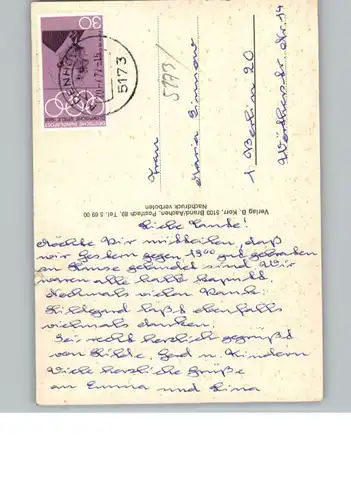 30
DEUTSCHE BUNDESPOST
OLYMPISCHE SPIELE 1968
5173
5173/
Frau
Maria
1 Berlin 20
Verlag B. Korr, 5103 Brand/Aachen, Postfach 89, Tel. 5 69 00
Nachdruck verboten
Liebe Tante!
Möchte Dir mitteilen, daß
wir gestern gegen 13 00 gut
zu Hause gelandet sind. Wir
waren alle halb kaputt.
Nochmals vielen Dank.
Hildegard läßt ebenfalls
vielmals danken.
Sei recht herzlich gegrüßt
von Hilde, Gerd u. Kindern
Viele herzliche Grüße
an Emma und Lina